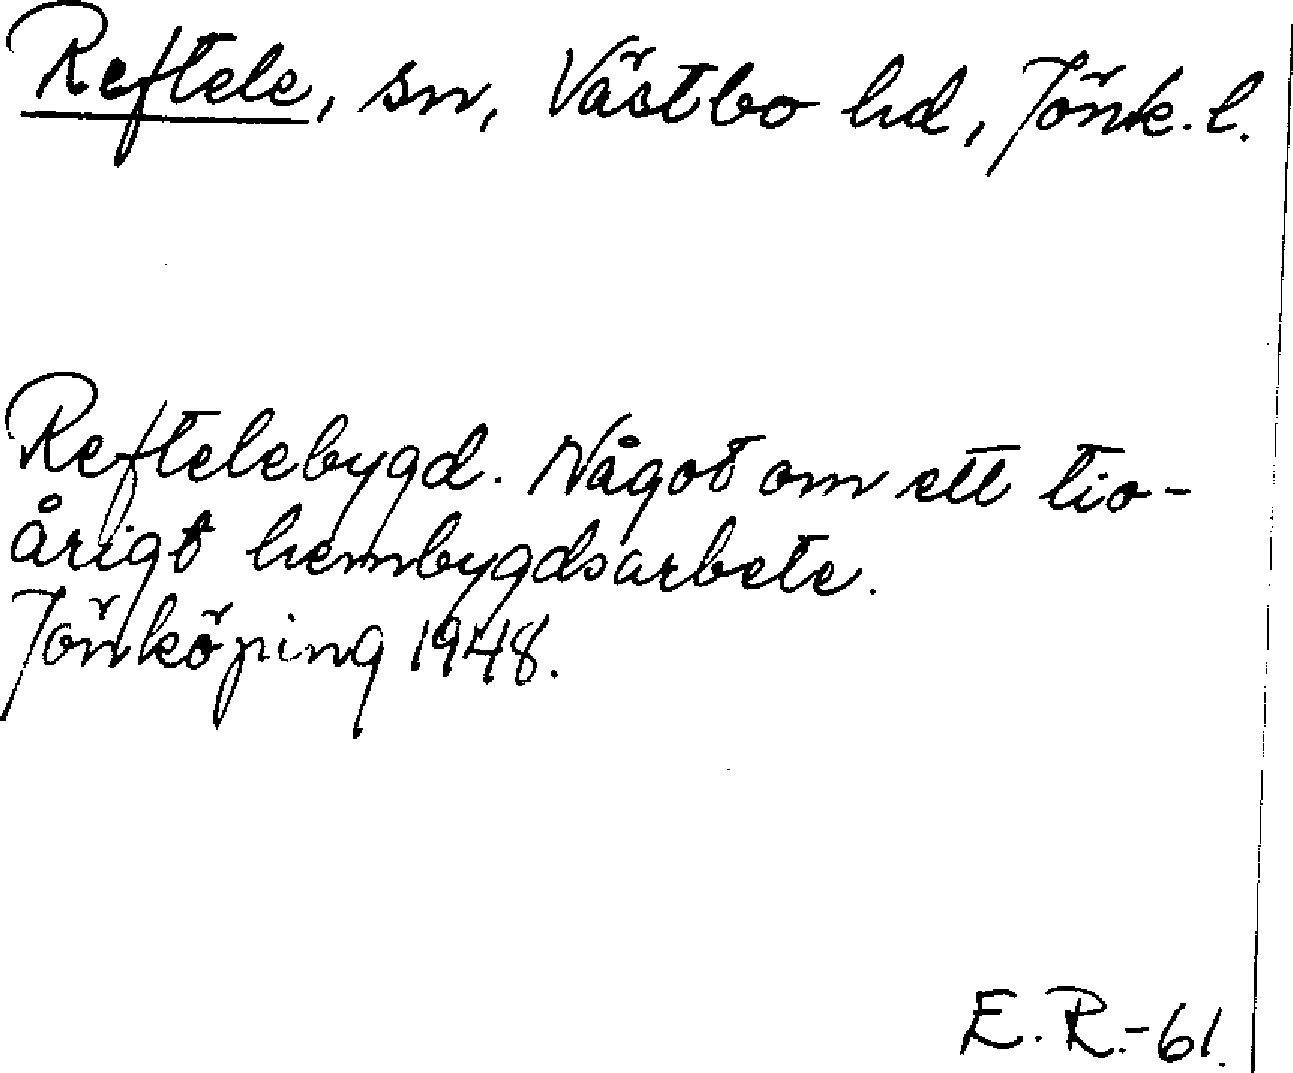 Reftele, sn, Västbo hd, Jönk. l.
Reftelebygd. Något om ett tio-
årigt hembygdsarbete.
Jönköping 1948.
E. R.-61.